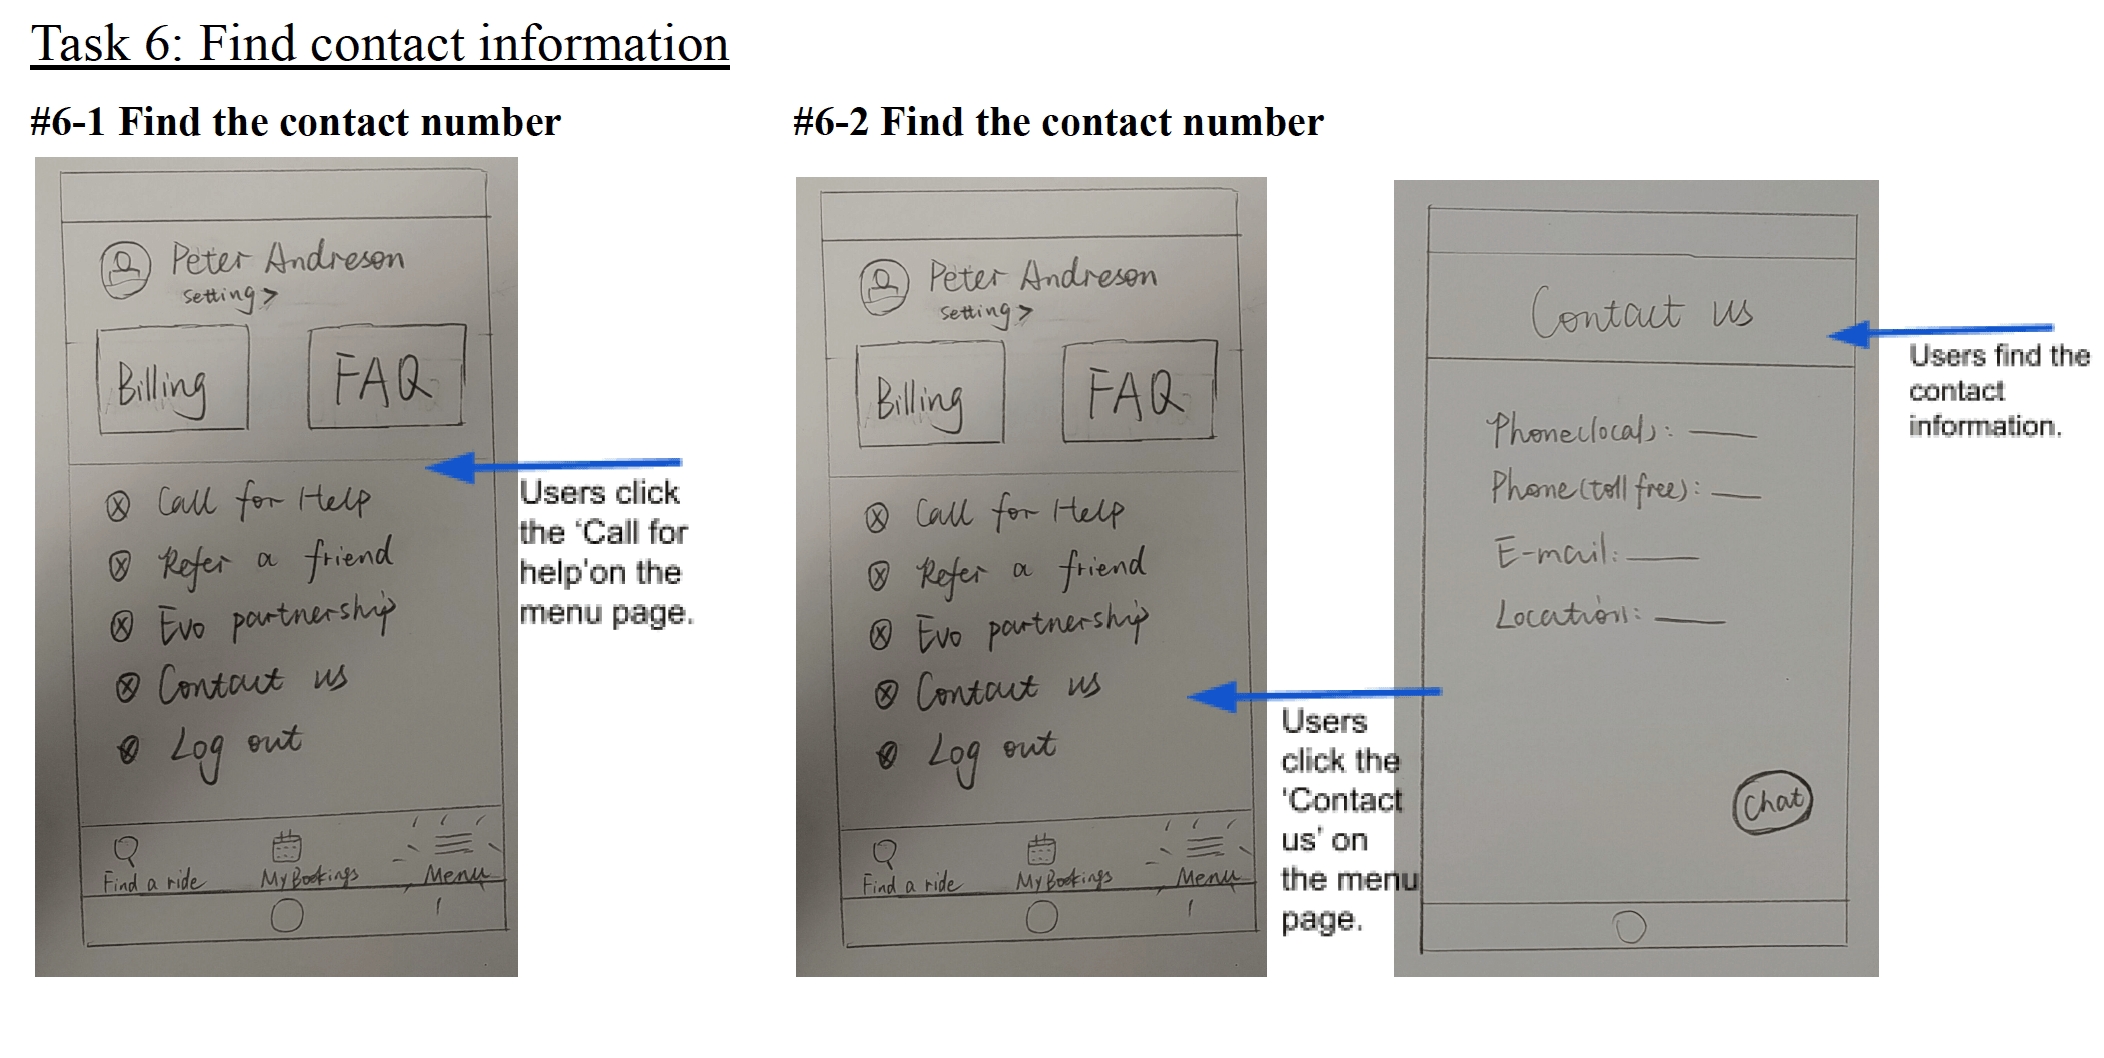 Task 6: Find contact information
#6-1 Find the contact number
Peter Andreson
setting >
Billing
FAQ
Call for Help
Refer a friend
Evo partnership
Contact us
Log out
Find a ride
My Bookings
Menu
Users click
the ‘Call for
help’on the
menu page.
#6-2 Find the contact number
Peter Andreson
setting >
Billing
FAQ
Call for Help
Refer a friend
Evo partnership
Contact us
Log out
Find a ride
My Bookings
Menu
Users
click the
‘Contact
us’ on
the menu
page.
Contact us
Phone(local):
Phone(toll free):
E-mail:
Location:
Chat
Users find the
contact
information.